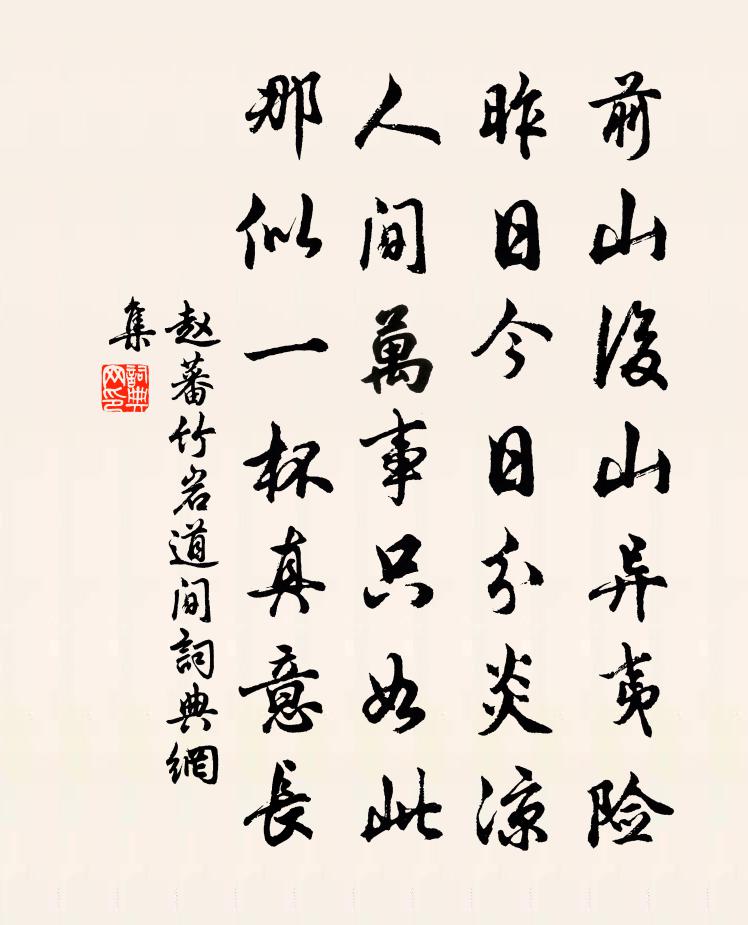 前山後山异夷险
昨日今日分炎涼
人间萬事只如此
那似一杯真意長
赵蕃竹岩道间詞典網
集
詞典
网印